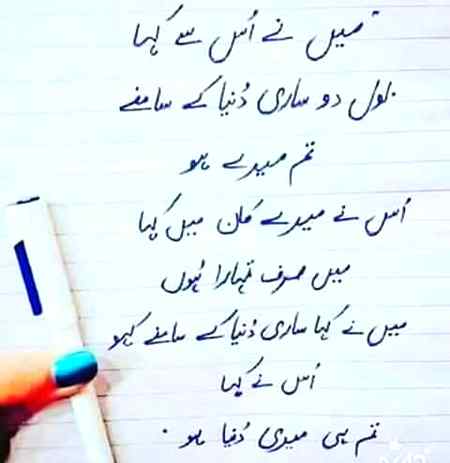 میں نے اُس سے کہا
بول دو ساری دُنیا کے سامنے
تم میرے ہو
اُس نے میرے کان میں کہا
میں صرف تمہارا ہُوں
میں نے کہا ساری دُنیا کے سامنے کہو
اُس نے کہا
تم ہی میری دُنیا ہو .